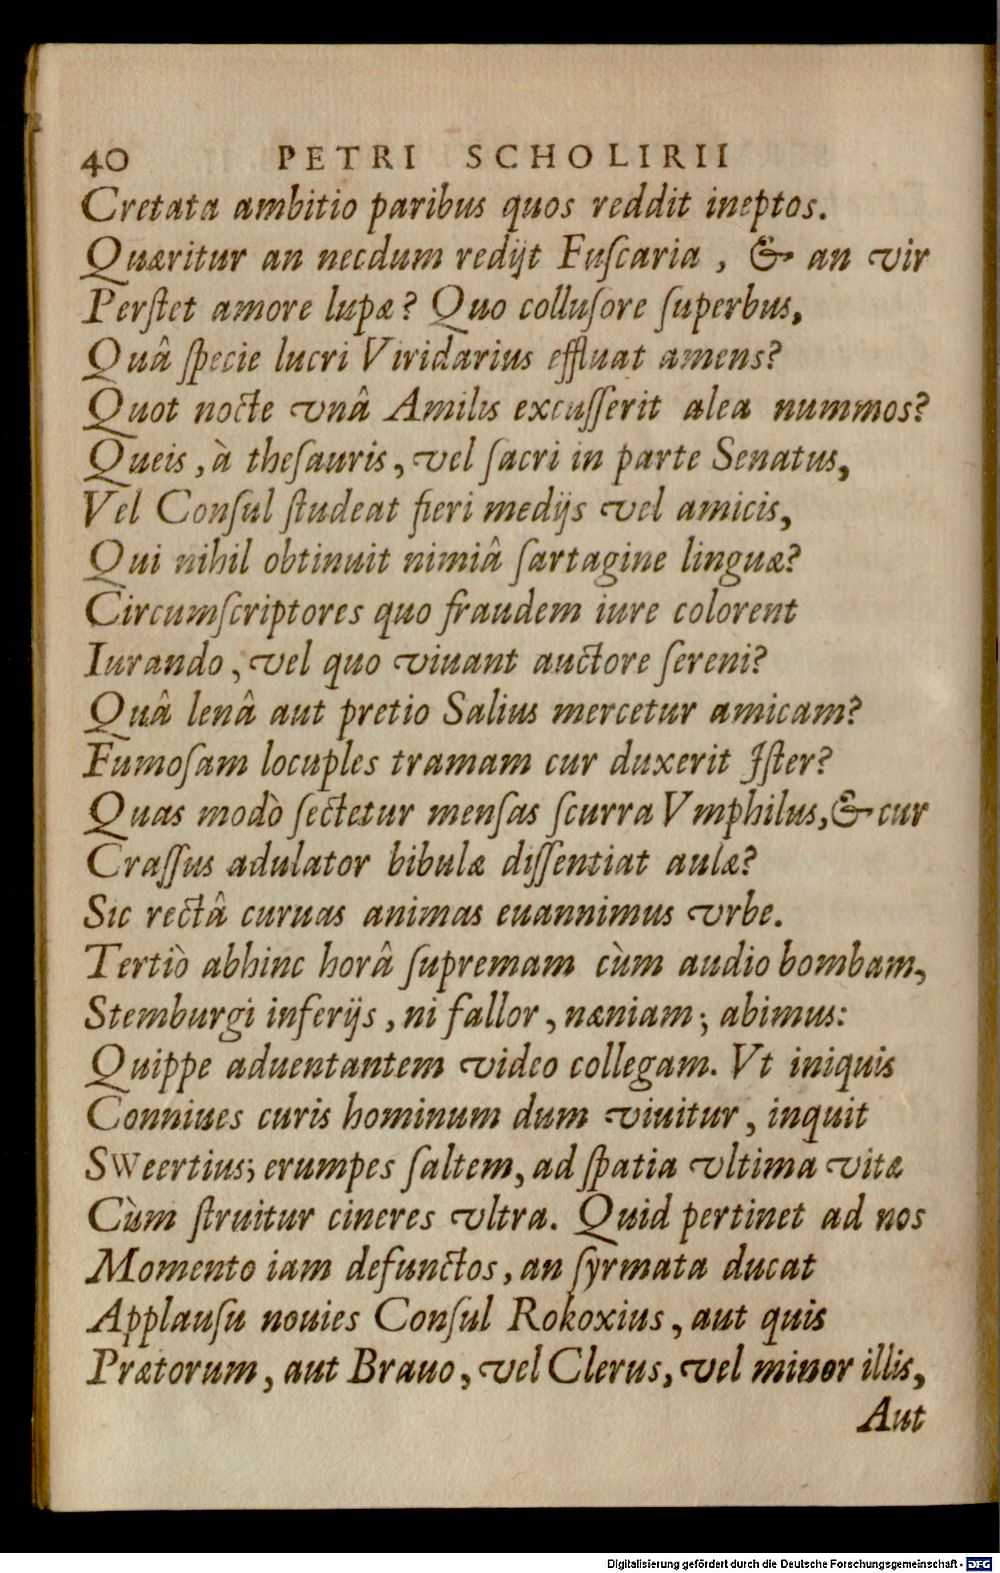 40 PETRI SCHOLIRII
Cretata ambitio paribus quos reddit ineptos.
Quæritur an necdum redijt Fuſcaria, & an vir
Perſtet amore lupæ? Quo colluſore ſuperbus,
Quâ ſpecie lucri Viridarius effluat amens?
Quot nocte vnâ Amilis excuſſerit alea nummos?
Queis, à theſauris, vel ſacri in parte Senatus,
Vel Conſul ſtudeat fieri medijs vel amicis,
Qui nihil obtinuit nimiâ ſartagine linguæ?
Circumſcriptores quo fraudem iure colorent
Iurando, vel quo viuant auctore ſereni?
Quâ lenâ aut pretio Salius mercetur amicam?
Fumoſam locuples tramam cur duxerit Iſter?
Quas modò ſectetur menſas ſcurra Vmphilus, & cur
Craſſus adulator bibulæ diſſentiat aulæ?
Sic rectâ curuas animas euannimus vrbe.
Tertiò abhinc horâ ſupremam cùm audio bombam,
Stemburgi inferijs, ni fallor, næniam; abimus:
Quippe aduentantem video collegam. Vt iniquis
Conniues curis hominum dum viuitur, inquit
SWeertius; erumpes ſaltem, ad ſpatia vltima vitæ
Cùm ſtruitur cineres vltra. Quid pertinet ad nos
Momento iam defunctos, an ſyrmata ducat
Applauſu nouies Conſul Rokoxius, aut quis
Prætorum, aut Brauo, vel Clerus, vel minor illis,
Aut
Digitalisierung gefördert durch die Deutsche Forschungsgemeinschaft - DFG